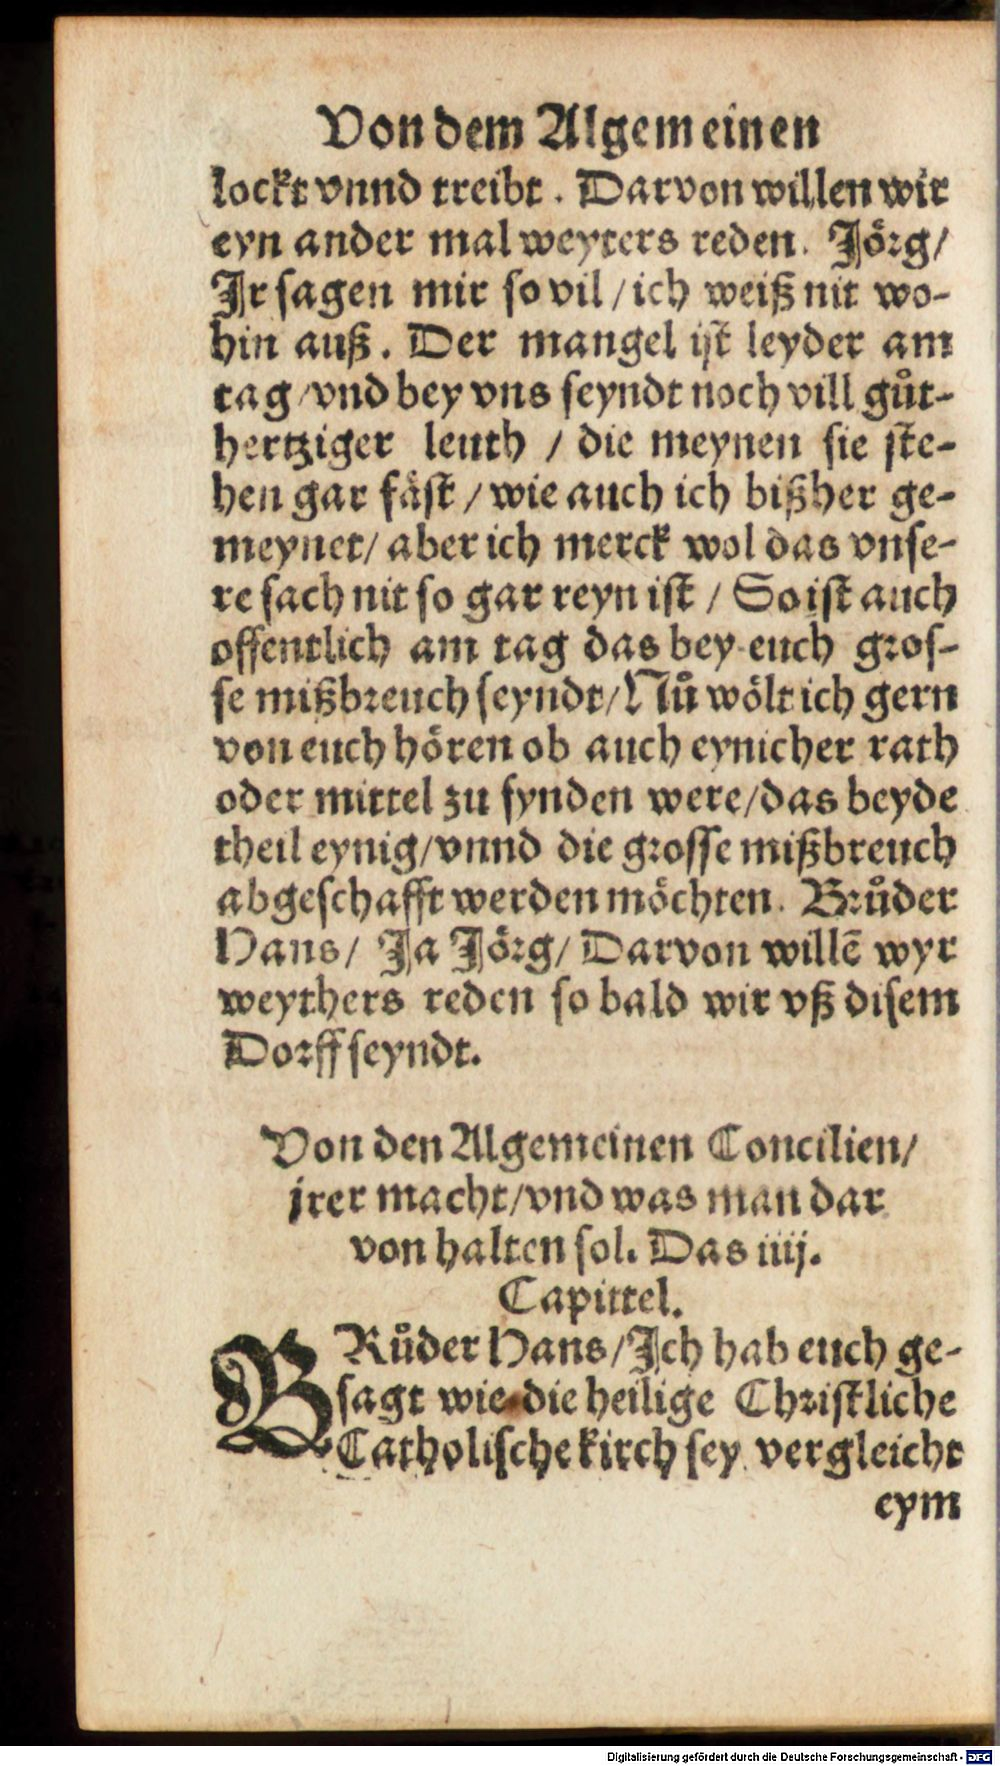 Von dem Algemeinen
lockt vnnd treibt. Darvon willen wir
eyn ander mal weyters reden. Jörg/
Jr sagen mir so vil / ich weiß nit wo-
hin auß. Der mangel ist leyder am
tag/vnd bey vns seyndt noch vill gůt-
hertziger leuth / die meynen sie ste-
hen gar fäst / wie auch ich bißher ge-
meynet/ aber ich merck wol das vnse-
re sach nit so gar reyn ist / So ist auch
offentlich am tag das bey euch gros-
se mißbreuch seyndt/Nů wölt ich gern
von euch hören ob auch eynicher rath
oder mittel zu fynden were/das beyde
theil eynig/vnnd die grosse mißbreuch
abgeschafft werden möchten. Brůder
Hans/ Ja Jörg/ Darvon willē wyr
weythers reden so bald wir vß disem
Dorff seyndt.
Von den Algemeinen Concilien/
jrer macht/vnd was man dar
von halten sol. Das iiij.
Capittel.
BRůder Hans/Jch hab euch ge-
sagt wie die heilige Christliche
Catholische kirch sey vergleicht
eym
Digitalisierung gefördert durch die Deutsche Forschungsgemeinschaft - DFG